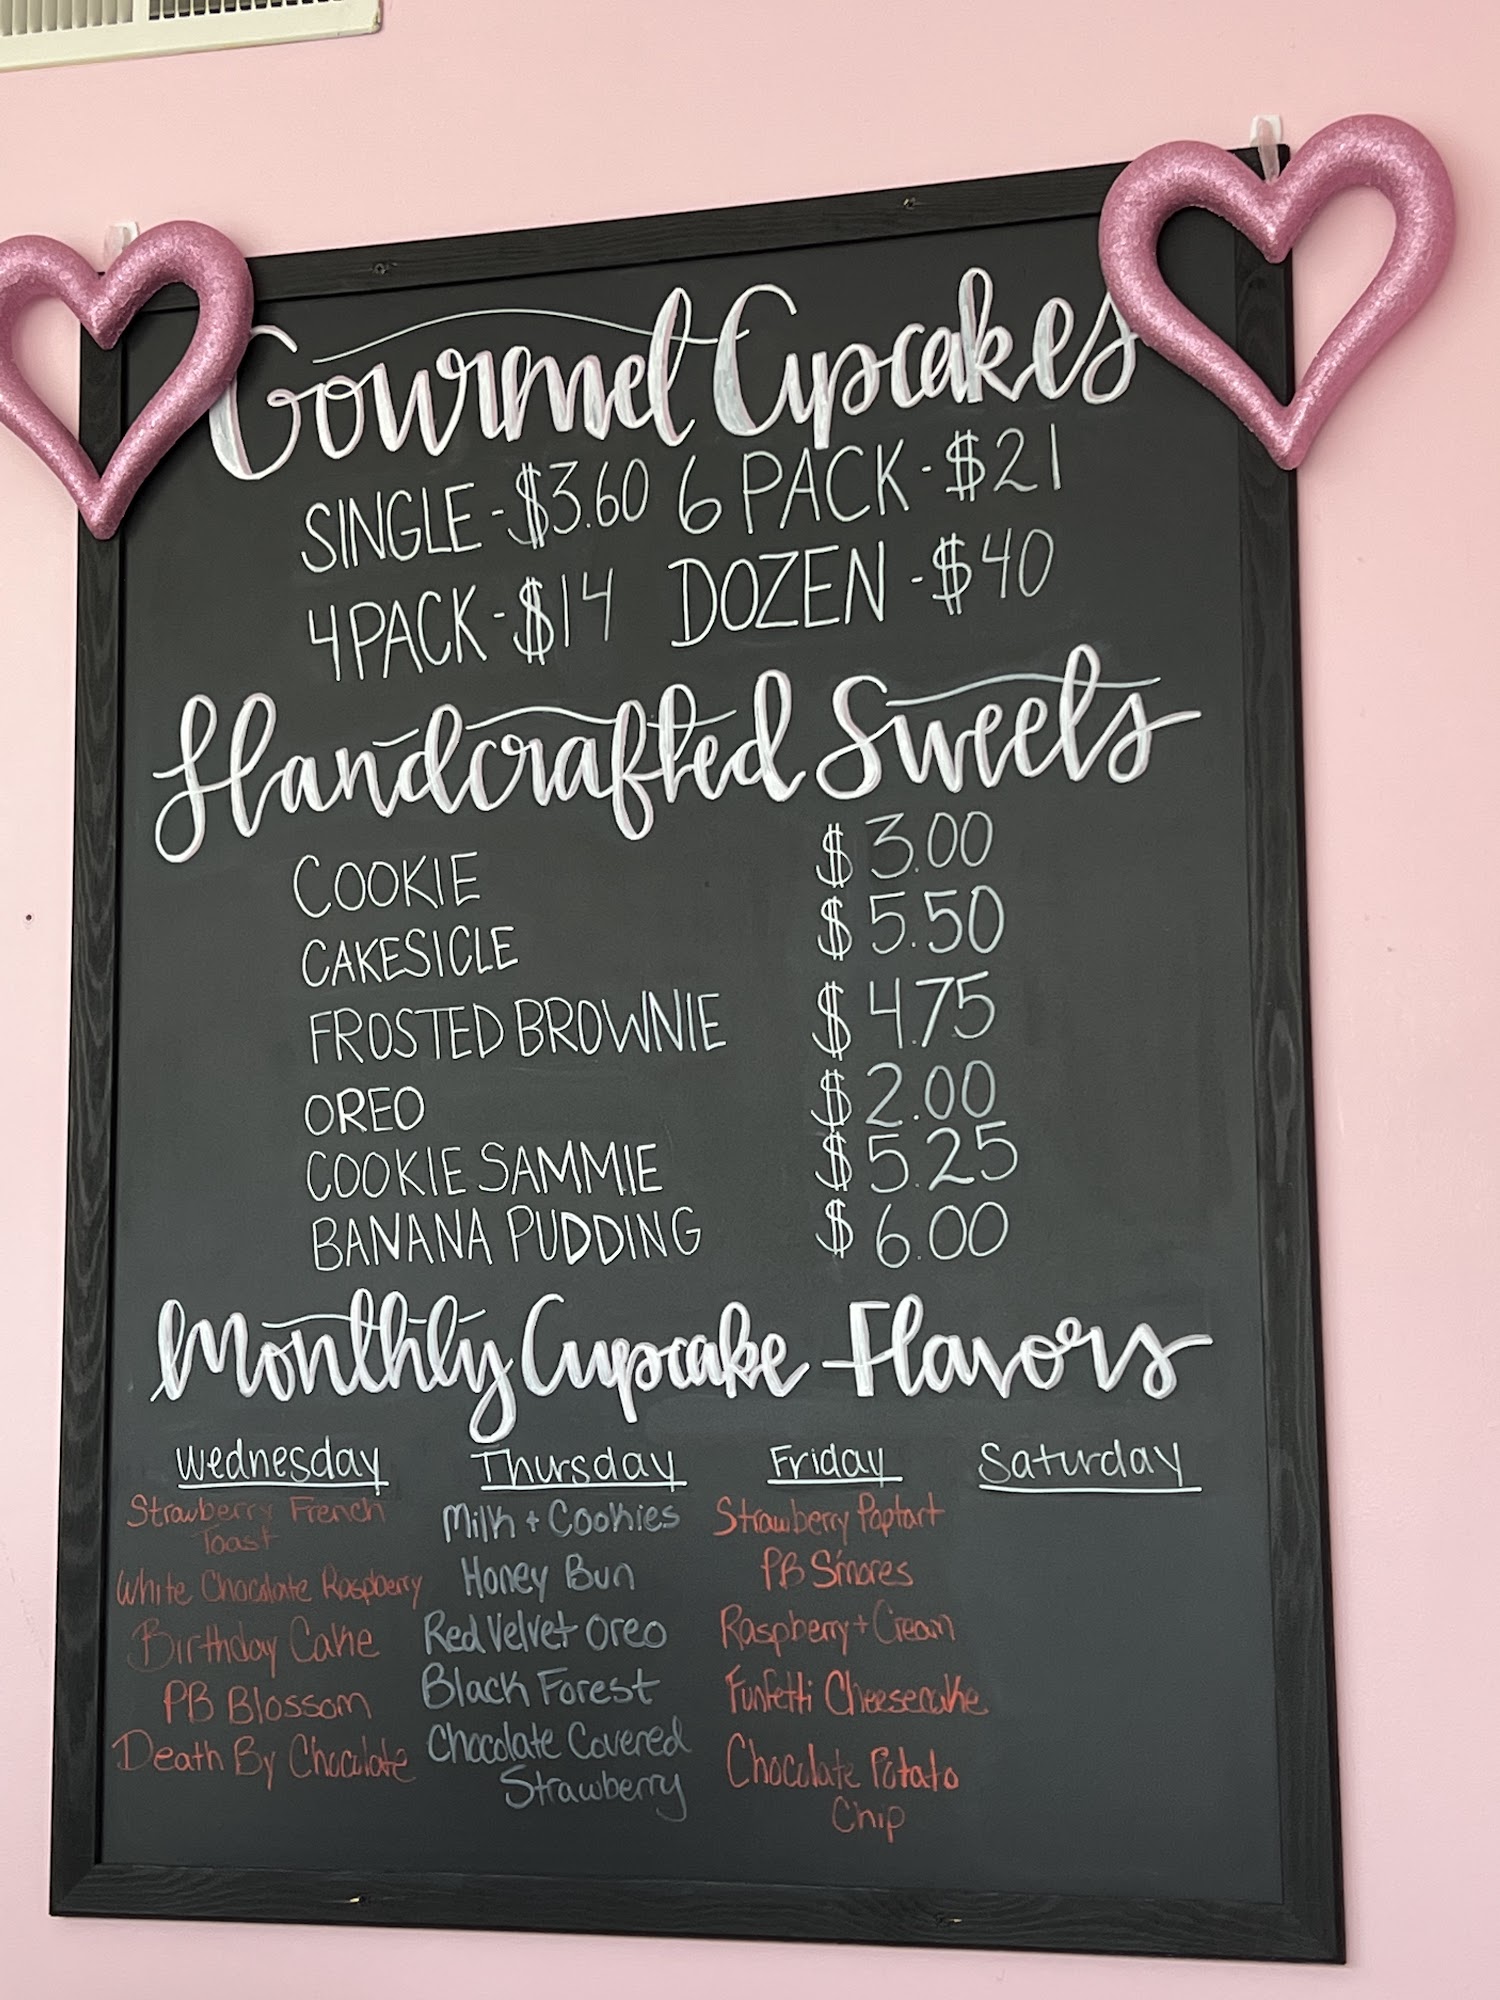 Gourmet Cupcakes
SINGLE - $3.60 6 PACK - $21
4 PACK - $14 DOZEN - $40
Handcrafted Sweets
COOKIE $3.00
CAKESICLE $5.50
FROSTED BROWNIE $4.75
OREO $2.00
COOKIE SAMMIE $5.25
BANANA PUDDING $6.00
Monthly Cupcake Flavors
Wednesday
Strawberry French
Toast
White Chocolate Raspberry
Birthday Cake
PB Blossom
Death By Chocolate
Thursday
Milk + Cookies
Honey Bun
Red Velvet Oreo
Black Forest
Chocolate Covered
Strawberry
Friday
Strawberry Poptart
PB S'mores
Raspberry + Cream
Funfetti Cheesecake
Chocolate Potato
Chip
Saturday